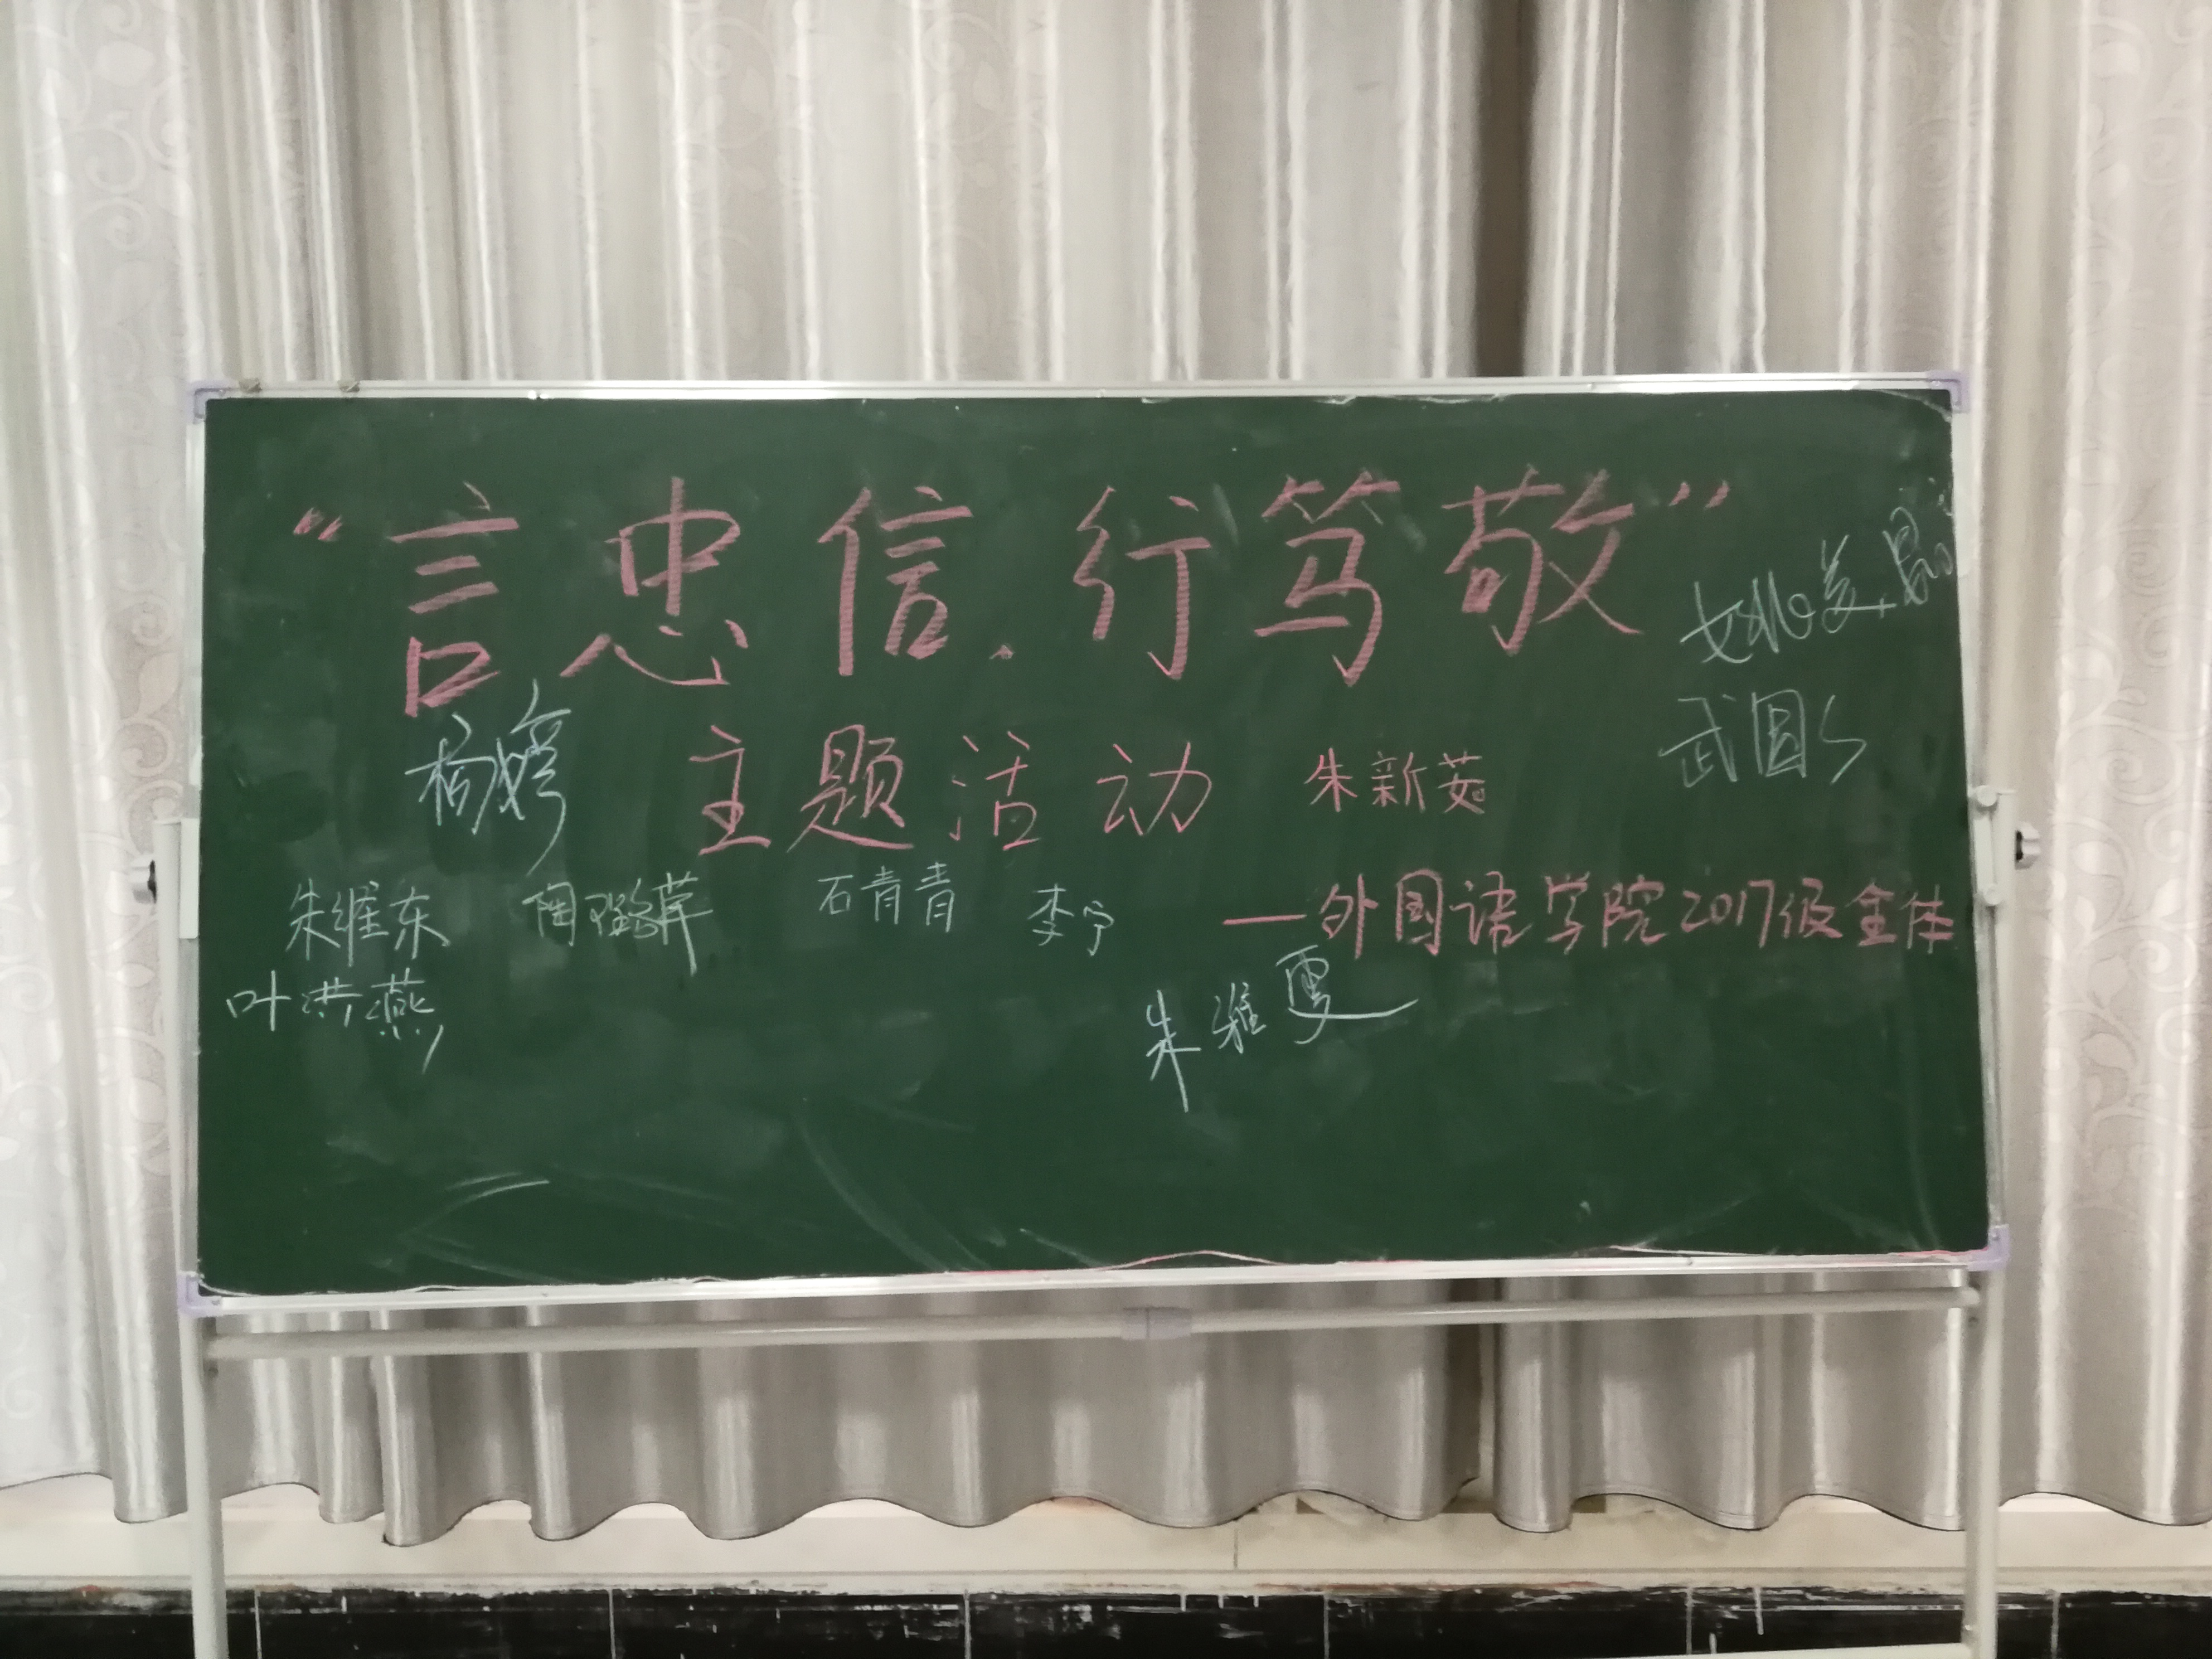 “言忠信.行笃敬”
武圆
杨婷
主题活动
朱新茹
朱维东
石青青
李宁
—外国语学院2017级全体
叶洪燕
朱雅雯